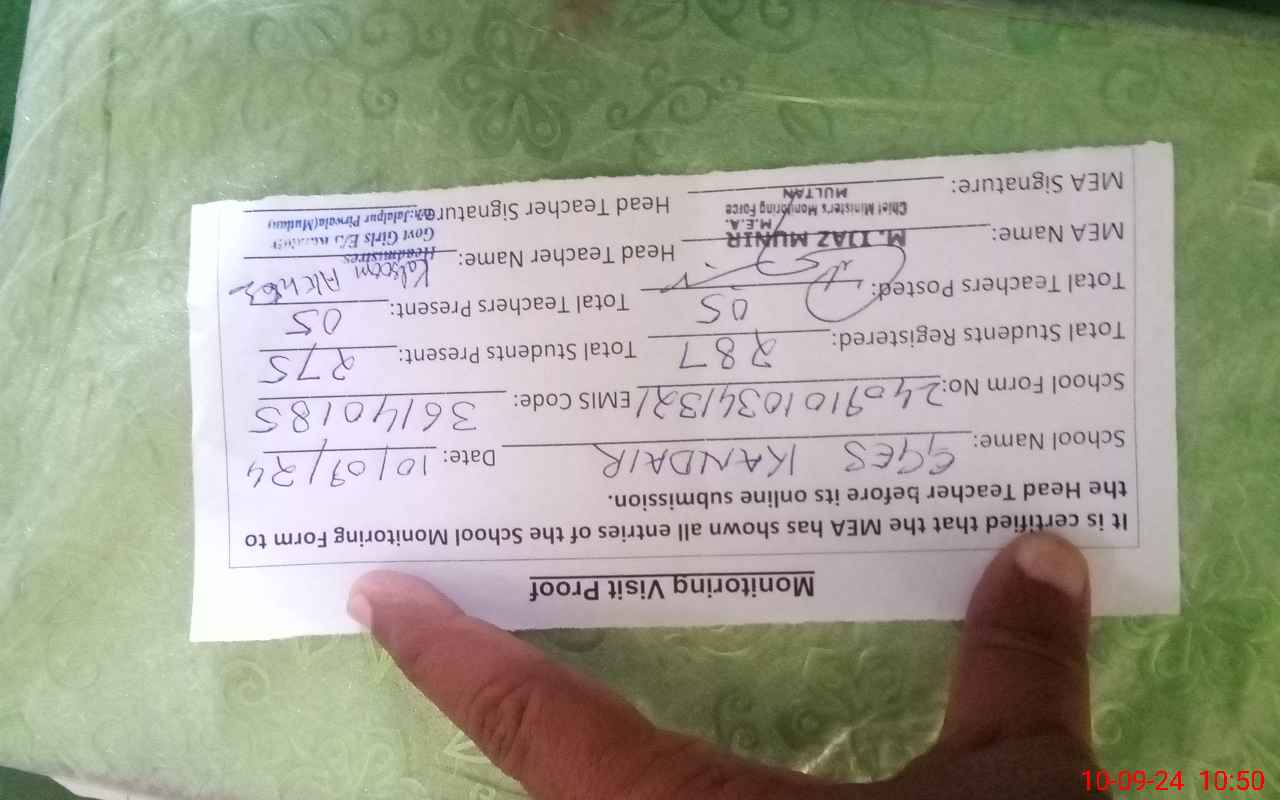 Monitoring Visit Proof
It is certified that the MEA has shown all entries of the School Monitoring Form to
the Head Teacher before its online submission.
School Name: GGES KANDAIR Date: 10/09/24
School Form No: 2409101034132/ EMIS Code: 36140185
Total Students Registered: 287 Total Students Present: 275
Total Teachers Posted: 05 Total Teachers Present: 05
MEA Name: M. IJAZ MUNIR Head Teacher Name: Kalsoom
M.E.A.
Headmistress
Chief Minister's Monitoring Force
Govt Girls E/S
MULTAN
Jalalpur Pirwala (Multan)
MEA Signature: Head Teacher Signature:
10-09-24 10:50